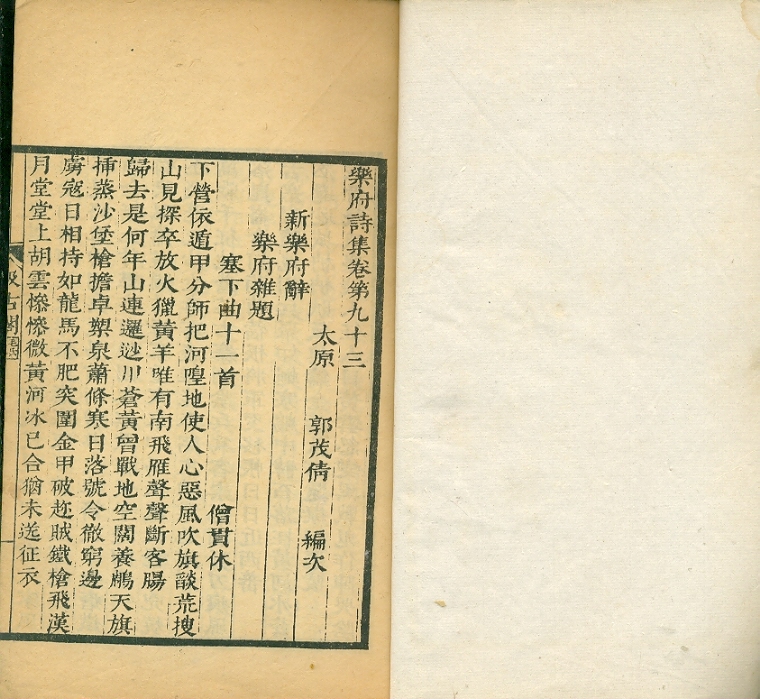 樂府詩集卷第九十三
太原 郭茂倩 編次
新樂府辭
樂府雜題
塞下曲十一首 僧貫休
下營依遁甲分師把河隍地使人心惡風吹旗焰荒搜
山見探卒放火獵黃羊唯有南飛雁聲聲斷客腸
歸去是何年山連邐迆川蒼黃曾戰地空闊養鵰天旗
揷蒸沙堡槍擔卓槊泉蕭條寒日落號令徹窮邊
虜寇日相持如龍馬不肥突圍金甲破趂賊鐵槍飛漢
月堂堂上胡雲慘慘微黃河冰已合猶未送征衣
古閣